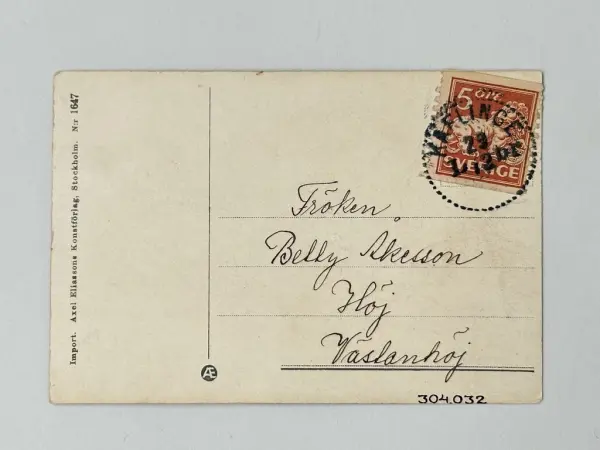 Import. Axel Eliassons Konstförlag, Stockholm. Nr 1647
5 ÖRE
SVERIGE
Fröken
Betty Åkesson
Höj
Västanhöj
Æ
304.032